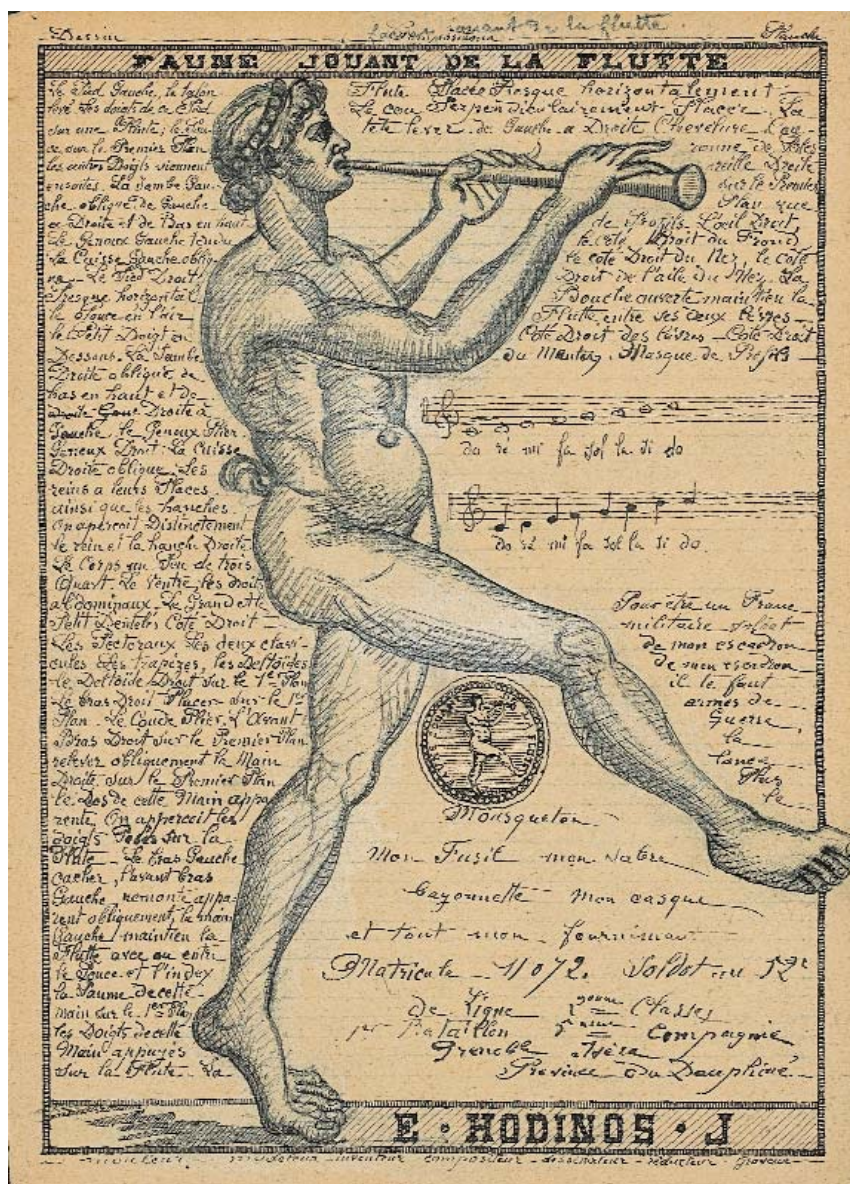 Dessin jouant de la flutte. Planche
FAUNE JOUANT DE LA FLUTTE
Le Pied Gauche, le talon
levé Les doigts de ce Pied
sur une Plinte; le Pou-
ce sur le Premier Plan
les autres Doigts viennent
ensuites. La Jambe Gau-
che oblique de Gauche
a Droite et de Bas en haut
Le Genoux Gauche tendu
La Cuisse Gauche obliq-
ue Le Pied Droit
Presque horizontal
le Pouce en l'air
le Petit Doigt en
Dessous. La Jambe
Droite oblique de
bas en haut et de
Droite a
Gauche, le Genoux Plier.
Genoux Droit. La Cuisse
Droite oblique. Les
reins a leurs Places
ainsi que les hanches.
On apercoit Distinctement
le rein et la hanche Droite
Le Corps un Peu de trois
Quart. Le Ventre, les droits
abdominaux. Le Grand et le
Petit Dentelés Coté Droit
Les Pectoraux Les deux clavi-
cules Les trapèzes, les Deltoïdes
le Deltoïde Droit sur le 1er Plan
Le bras Droit Placer sur le 1er
Plan. Le Coude Plier. L'Avant
Bras Droit sur le Premier Plan
relever obliquement la Main
Droite sur le Premier Plan
le Dos de cette Main appa
rente On appercoit les
doigts Posés sur la
Flute Le bras Gauche
cacher, l'avant bras
Gauche, remonté appa-
rent obliquement, la main
Gauche maintien la
Flutte avec ou entre
le Pouce et l'index
la Paume de cette
main sur le 1er Plan
les Doigts de cette
Main appuyés
sur la Flute. La
Flute Placée Presque horizontalement
Le cou Perpendiculairement Placer. La
tête lever de Gauche a Droite Chevelure Cou-
ronne de
oreille Droite
sur le Premier
Plan que
de Profils L'œil Droit,
le côté Droit du Front
le côté Droit du Nez, le côté
Droit de l'aile du Nez. La
Bouche ouverte maintien la
Flutte entre ses deux lèvres
Coté Droit des lèvres Coté Droit
du Menton. Masque de Profils
do ré mi fa sol la si do
do ré mi fa sol la si do
Pour être un Franc
militaire soldat
de mon escadron
de mon escadron
il te faut
armes de
Guerre,
la
lance
Plus
le
Mousqueton
Mon Fusil mon sabre
bayonnette mon casque
et tout mon fourniment
Matricule 11072. Soldat au 52e
de Ligne 2 eme Classes
1er Bataillon Compagnie
Grenoble Isère
Province du Dauphiné
E · HODINOS · J
mouleur modeleur inventeur compositeur dessinateur rédacteur graveur